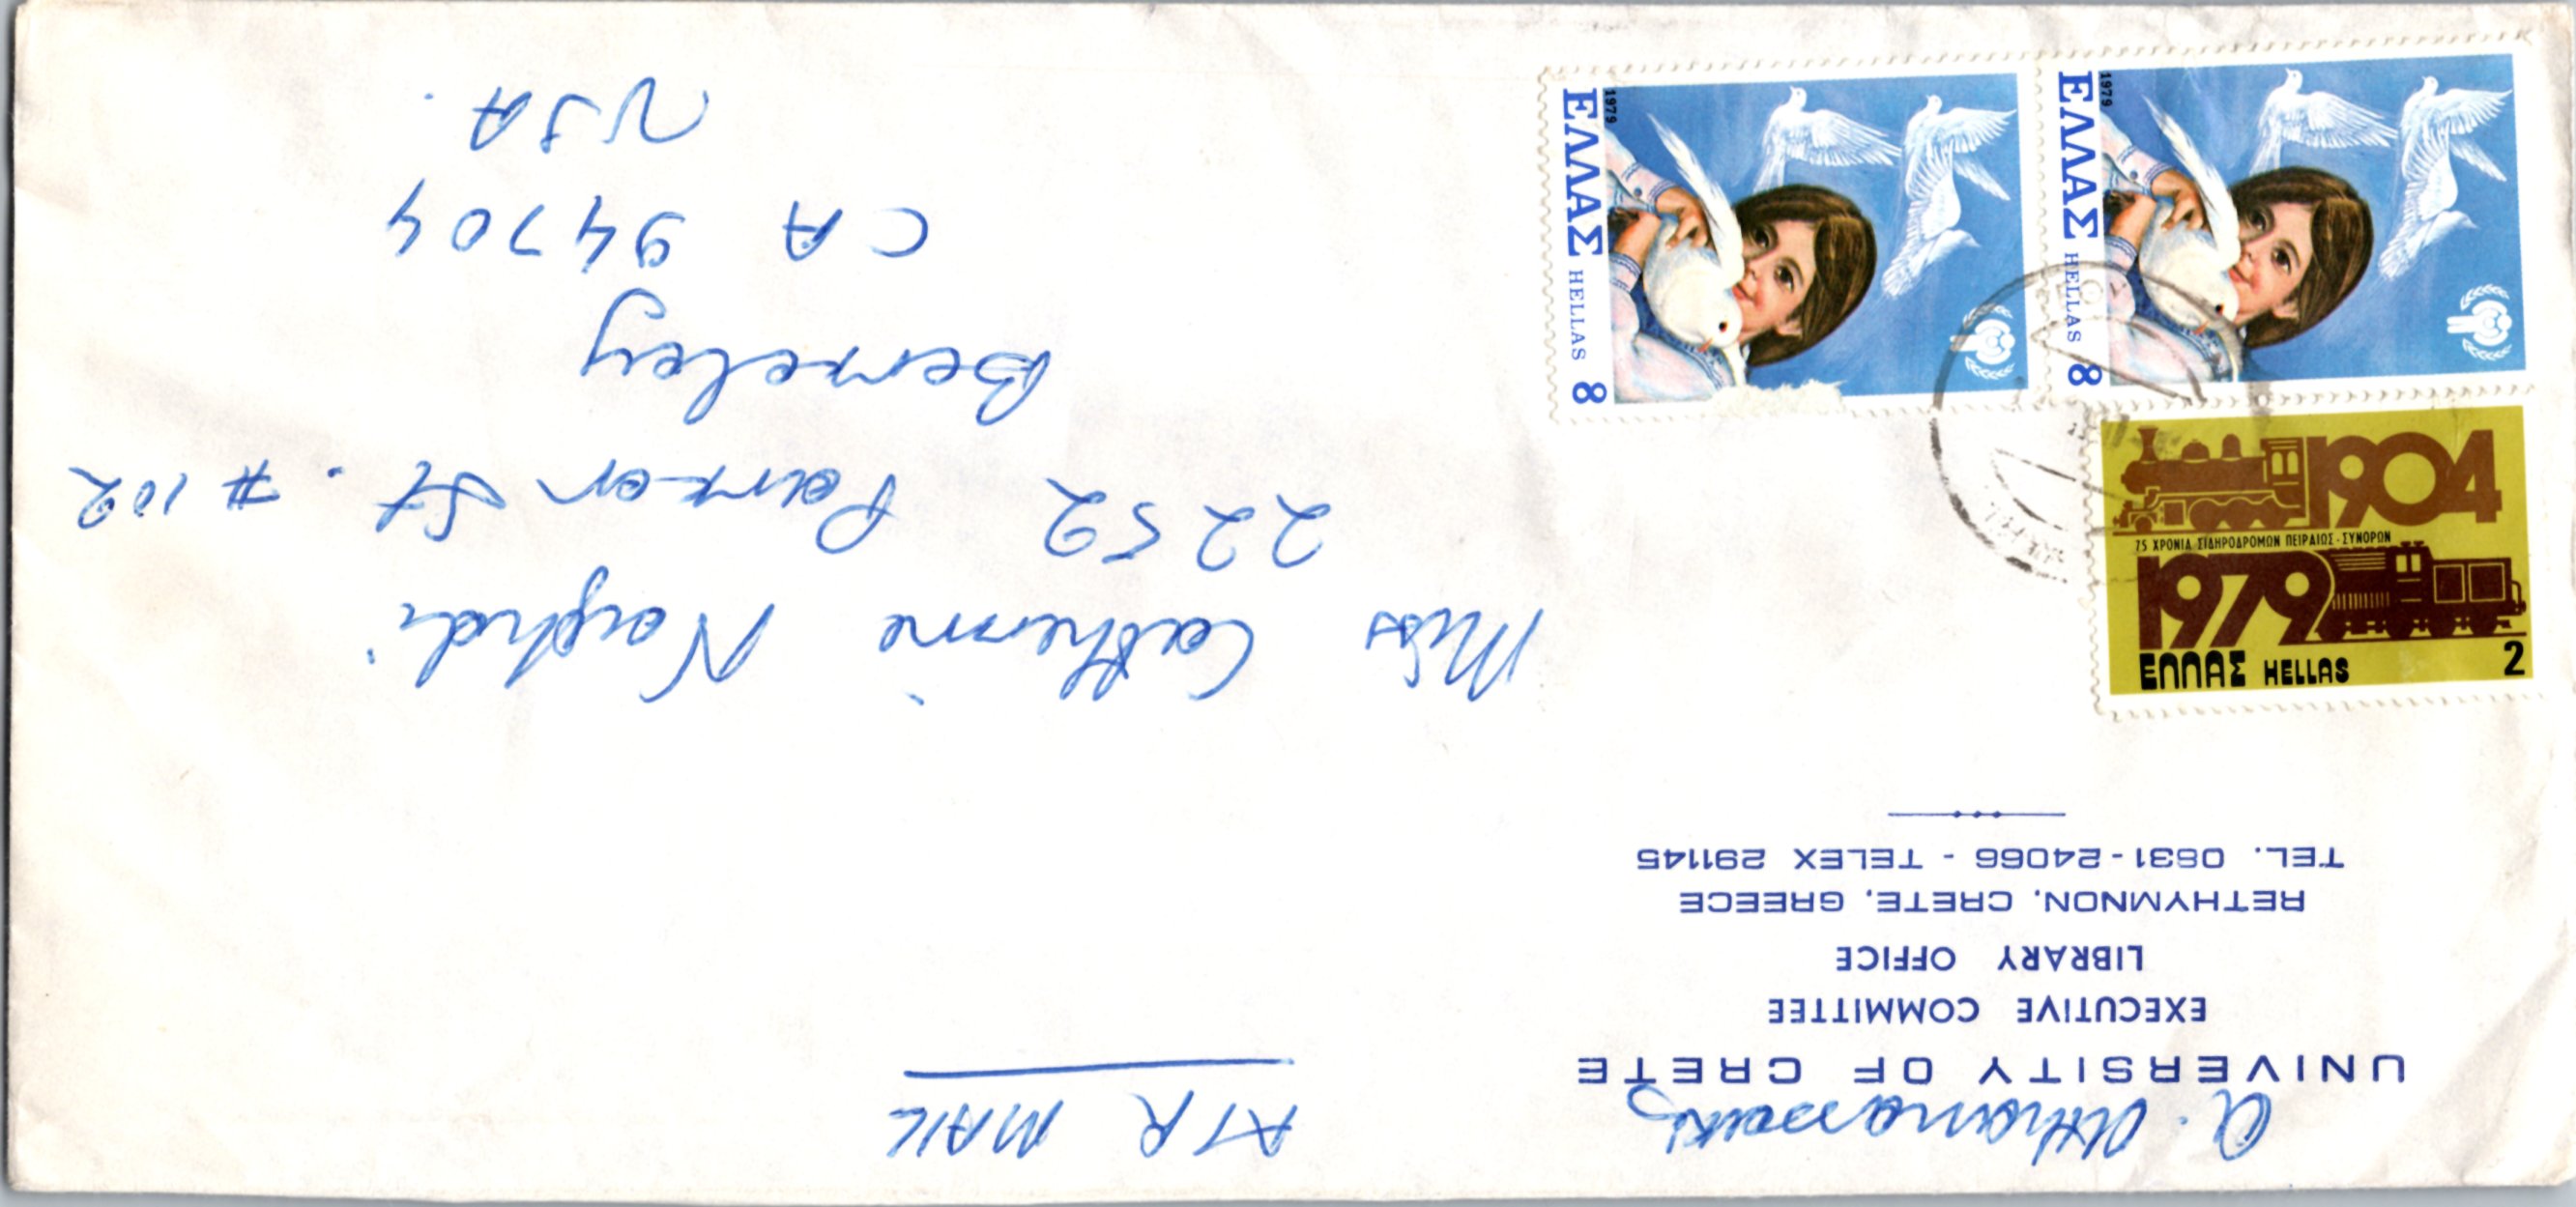 A. Athanasakis
UNIVERSITY OF CRETE
EXECUTIVE COMMITTEE
LIBRARY OFFICE
RETHYMNON, CRETE, GREECE
TEL. 0831-24066 - TELEX 291145
AIR MAIL
Miss Catherine Naghdi
2252 Parker St. #102
Berkeley
CA 94704
USA.
1979
ΕΛΛΑΣ HELLAS 8
1979
ΕΛΛΑΣ HELLAS 8
1904
75 ΧΡΟΝΙΑ ΣΙΔΗΡΟΔΡΟΜΩΝ ΠΕΙΡΑΙΩΣ-ΣΥΝΟΡΩΝ
1979
ΕΛΛΑΣ HELLAS 2